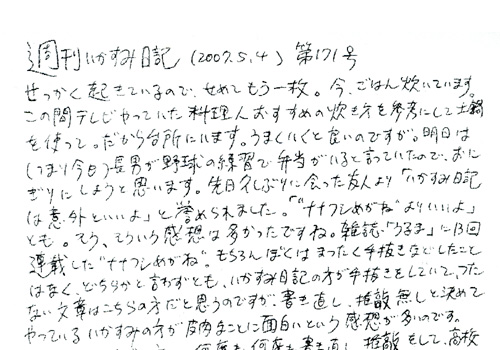 週刊いかすみ日記 (2007.5.4) 第171号
せっかく起きているので、せめてもう一枚。今、ごはん炊いています。
この間テレビやっていた料理人おすすめの炊き方を参考にして土鍋
を使って。だから台所にいます。うまくいくと良いのですが。明日は
(つまり今日)長男が野球の練習で弁当がいると言っていたので、おに
ぎりにしようと思います。先日久しぶりに会った友人より「いかすみ日記
は意外といいよ」と誉められました。「"ナナフシめがね"よりいいよ」
とも。そう、そういう感想は多かったですね。雑誌「うるま」に13回
連載した"ナナフシめがね"。もちろんぼくはまったく手抜きなどしたこと
はなく、どちらかと言わずとも、いかすみ日記の方が手抜きをしていて、つた
ない文章はこちらの方だと思うのですが、書き直し、推敲無しと決めて
やっているいかすみの方が皮肉なことに面白いという感想が多いのです。
何度も何度も書き直し、推敲をして、高校